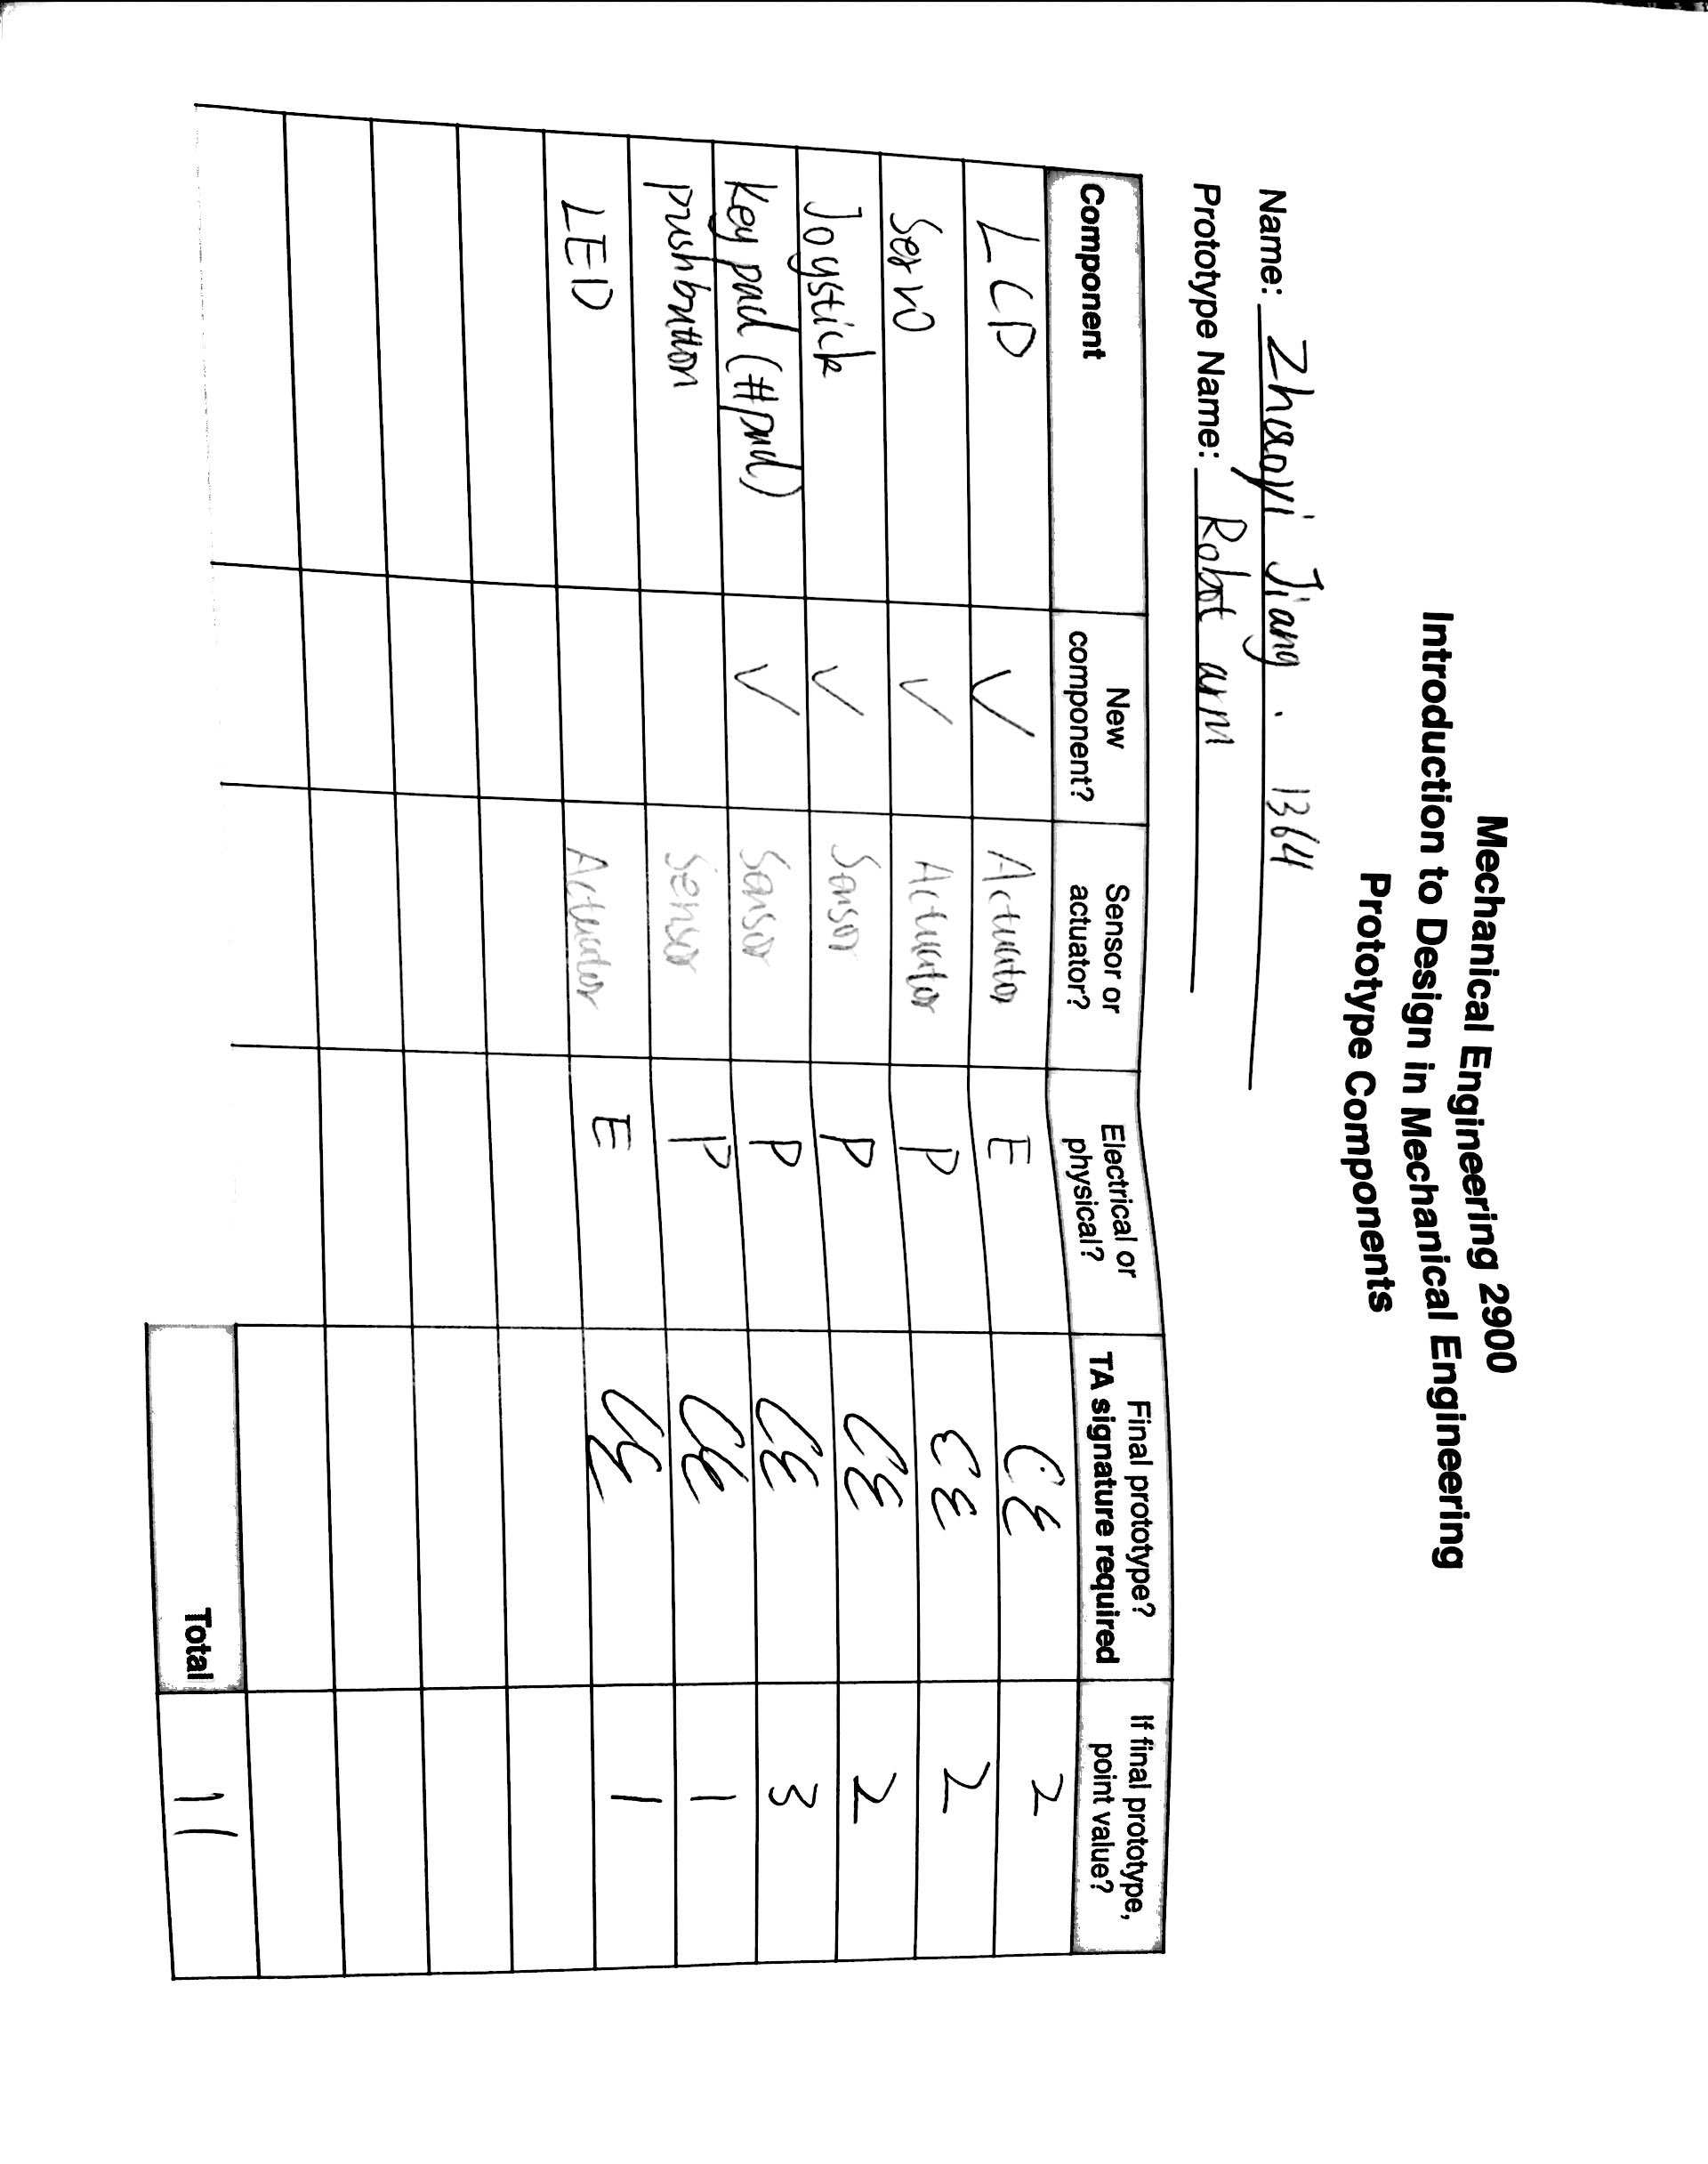 Mechanical Engineering 2900
Introduction to Design in Mechanical Engineering
Prototype Components
Name: Zhaoyi Jiang . 1364
Prototype Name: Robot arm
Component New component? Sensor or actuator? Electrical or physical? Final prototype? TA signature required If final prototype, point value?
LCD ✓ Actuator E CE 2
Servo ✓ Actuator P CE 2
Joystick ✓ Sensor P CE 2
Key pad (#pad) ✓ Sensor P CE 3
pushbutton Sensor P CE 1
LED Actuator E CE 1
Total 11